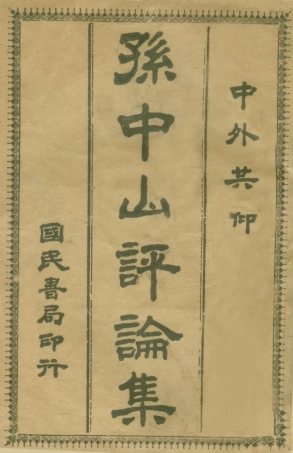 中外共仰
孫中山評論集
國民書局印行